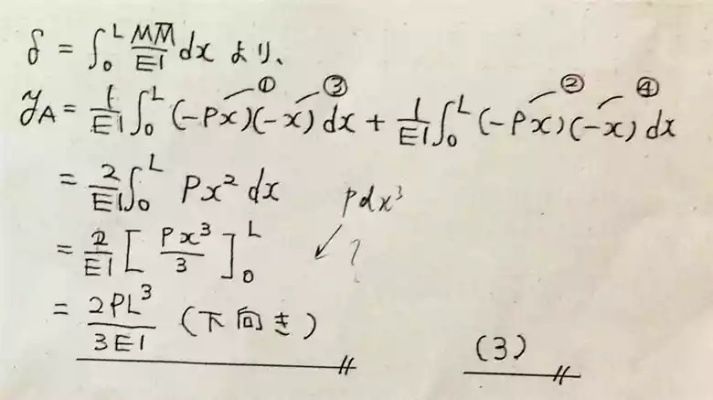 δ = ∫₀ᴸ MM̄/EI dx より、
① ③ ② ④
y_A = 1/EI ∫₀ᴸ (-Px)(-x) dx + 1/EI ∫₀ᴸ (-Px)(-x) dx
= 2/EI ∫₀ᴸ Px² dx
Pdx³
= 2/EI [Px³/3]₀ᴸ ?
= 2PL³/3EI (下向き)
(3)